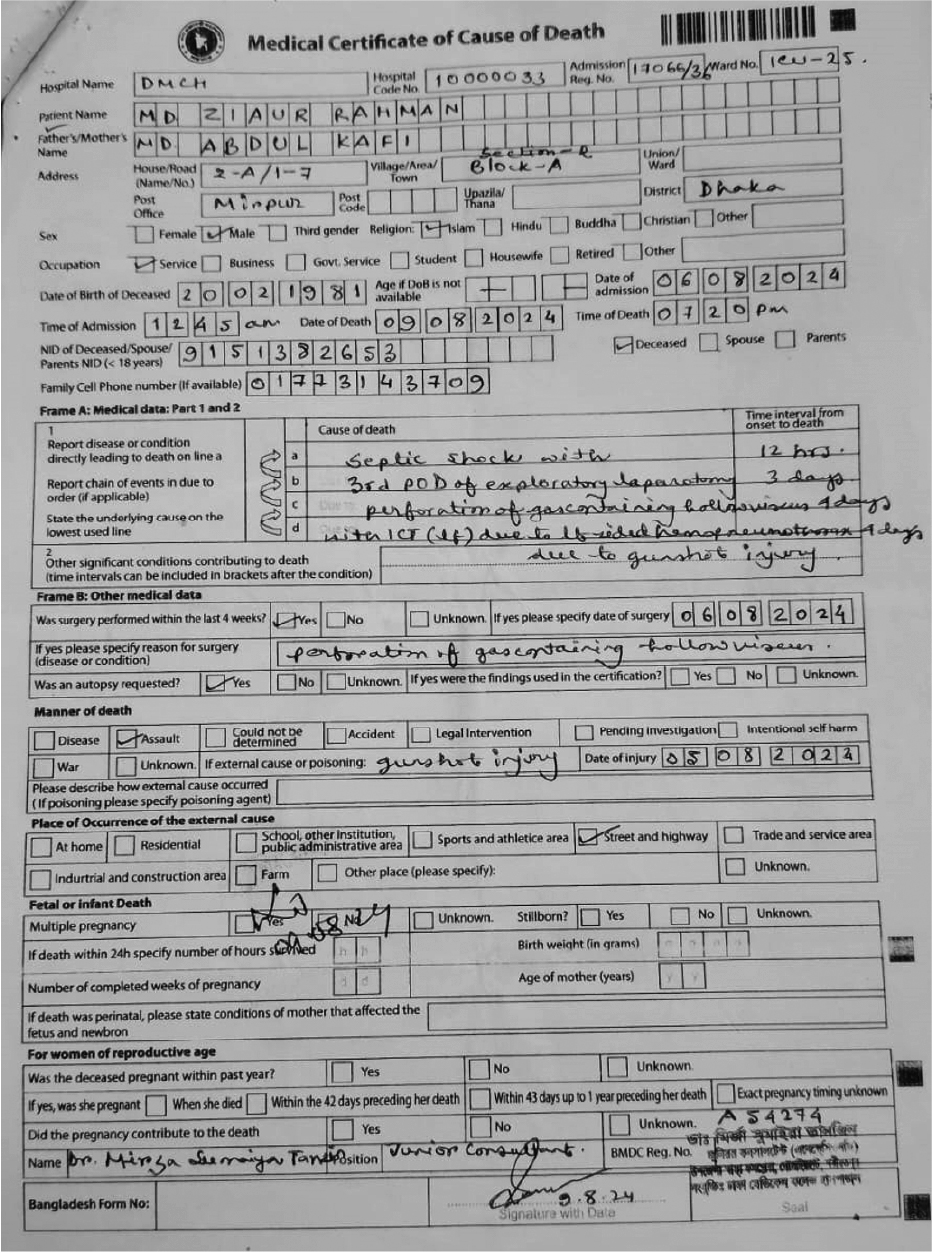 Medical Certificate of Cause of Death
Hospital Name DMCH Hospital Code No. 10000033 Admission Reg. No. 17066/36 Ward No. ICU-25.
Patient Name MD ZIAUR RAHMAN
Father's/Mother's Name MD ABDUL KAFI
Address House/Road (Name/No.) 2-A/1-7 Village/Area/Town Section-2 Block-A Union/Ward
Post Office Mirpur Post Code Upazila/Thana District Dhaka
Sex Female Male Third gender Religion: Islam Hindu Buddha Christian Other
Occupation Service Business Govt. Service Student Housewife Retired Other
Date of Birth of Deceased 20021981 Age if DoB is not available Date of admission 06082024
Time of Admission 1245 am Date of Death 09082024 Time of Death 0720 pm
NID of Deceased/Spouse/Parents NID (< 18 years) 9151382653 Deceased Spouse Parents
Family Cell Phone number (If available) 01773143709
Frame A: Medical data: Part 1 and 2
1 Cause of death Time interval from onset to death
Report disease or condition directly leading to death on line a
a Septic shock with 12 hrs.
Report chain of events in due to order (if applicable)
b 3rd POD of exploratory laparatomy 3 days
c perforation of gascontaining hollow viscus 4 days
State the underlying cause on the lowest used line
d with ICT (lf) due to lf sided hemopneumothorax 4 days
2 due to gunshot injury
Other significant conditions contributing to death
(time intervals can be included in brackets after the condition)
Frame B: Other medical data
Was surgery performed within the last 4 weeks? Yes No Unknown. If yes please specify date of surgery 06082024
If yes please specify reason for surgery (disease or condition) perforation of gascontaining hollow viscus.
Was an autopsy requested? Yes No Unknown. If yes were the findings used in the certification? Yes No Unknown.
Manner of death
Disease Assault Could not be determined Accident Legal Intervention Pending investigation Intentional self harm
War Unknown. If external cause or poisoning: gunshot injury Date of injury 05082024
Please describe how external cause occurred
(If poisoning please specify poisoning agent)
Place of Occurrence of the external cause
At home Residential School, other Institution, public administrative area Sports and athletice area Street and highway Trade and service area
Indurtrial and construction area Farm Other place (please specify): Unknown.
Fetal or infant Death
Multiple pregnancy Yes No Unknown. Stillborn? Yes No Unknown.
If death within 24h specify number of hours survived h h Birth weight (in grams)
Number of completed weeks of pregnancy d d Age of mother (years) y y
If death was perinatal, please state conditions of mother that affected the fetus and newbron
For women of reproductive age
Was the deceased pregnant within past year? Yes No Unknown.
If yes, was she pregnant When she died Within the 42 days preceding her death Within 43 days up to 1 year preceding her death Exact pregnancy timing unknown
Did the pregnancy contribute to the death Yes No Unknown.
A 54274
Name Dr. Mirza Position Junior Consultant. BMDC Reg. No.
9.8.24
Bangladesh Form No: Signature with Data Seal